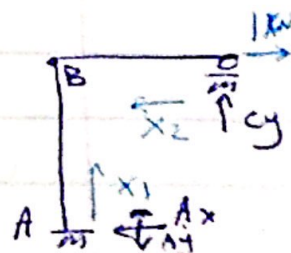 1 KN
B
C
X2
Cy
X1
A
Ax
Ay